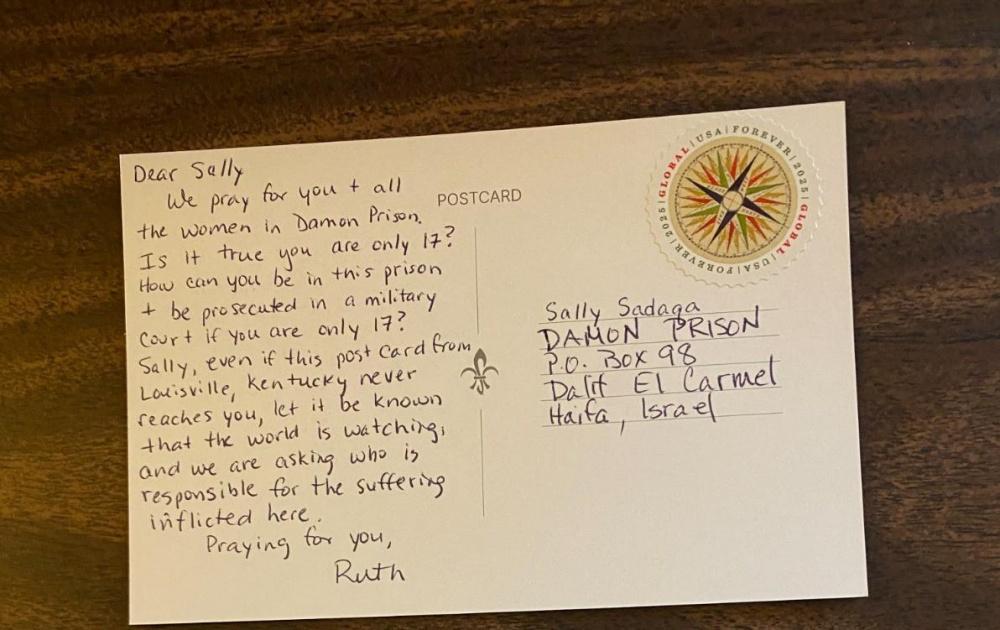 Dear Sally
We pray for you + all
the women in Damon Prison.
Is it true you are only 17?
How can you be in this prison
+ be prosecuted in a military
court if you are only 17?
Sally, even if this post card from
Louisville, Kentucky never
reaches you, let it be known
that the world is watching,
and we are asking who is
responsible for the suffering
inflicted here.
Praying for you,
Ruth
POSTCARD
GLOBAL | USA | FOREVER | 2025 | GLOBAL | USA | FOREVER | 2025 |
Sally Sadaga
DAMON PRISON
P.O. Box 98
Dalit El Carmel
Haifa, Israel